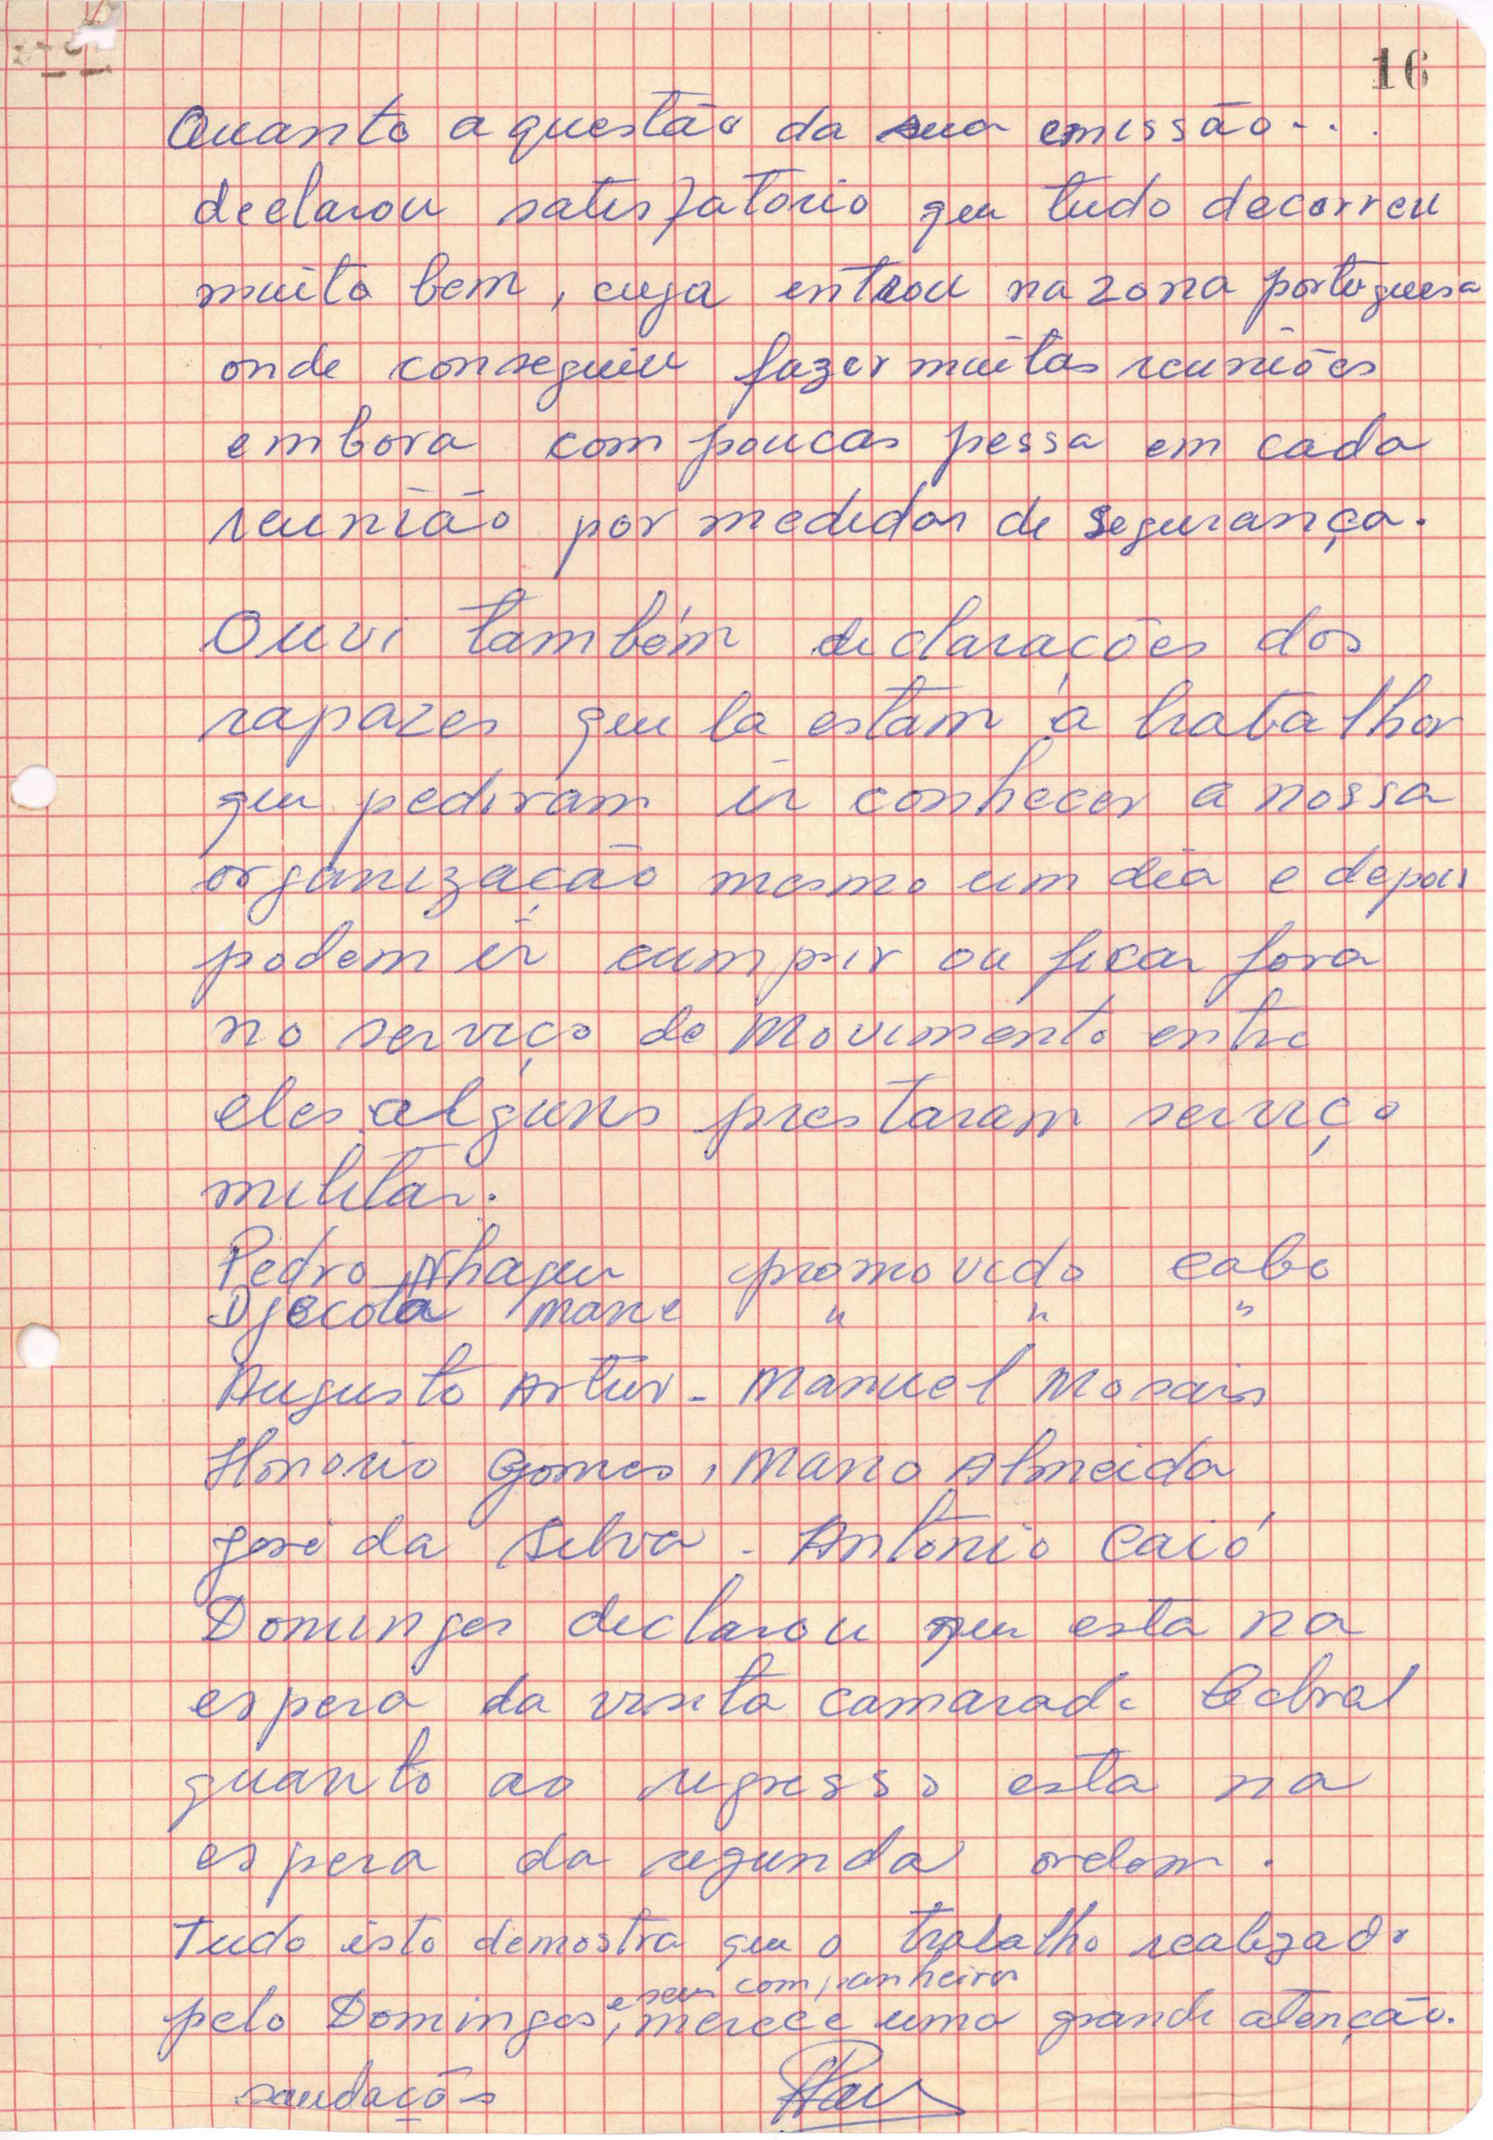 16
Quanto a questão da sua emissão...
declarou satisfatorio que tudo decorreu
muito bem, cuja entrou na zona portuguesa
onde conseguiu fazer muitas reuniões
embora com poucas pessa em cada
reunião por medidas de segurança.
Ouvi também declarações dos
rapazes que la estam á trabalhar
que pediram ir conhecer a nossa
organização mesmo um dia e depois
podem ir cumprir ou ficar fora
no serviço do Movimento entre
eles alguns prestaram serviço
militar.
Pedro promovido cabo
Djocola mane " " "
Augusto Artur - Manuel Morais
Honorio Gomes, Mario Almeida
José da Silva - António Caió
Domingos declarou que esta na
espera da visita camarada Cabral
quanto ao regresso esta na
espera da segunda ordem.
Tudo isto demostra que o trabalho realizado
e seus companheiros
pelo Domingos, merece uma grande atenção.
saudações